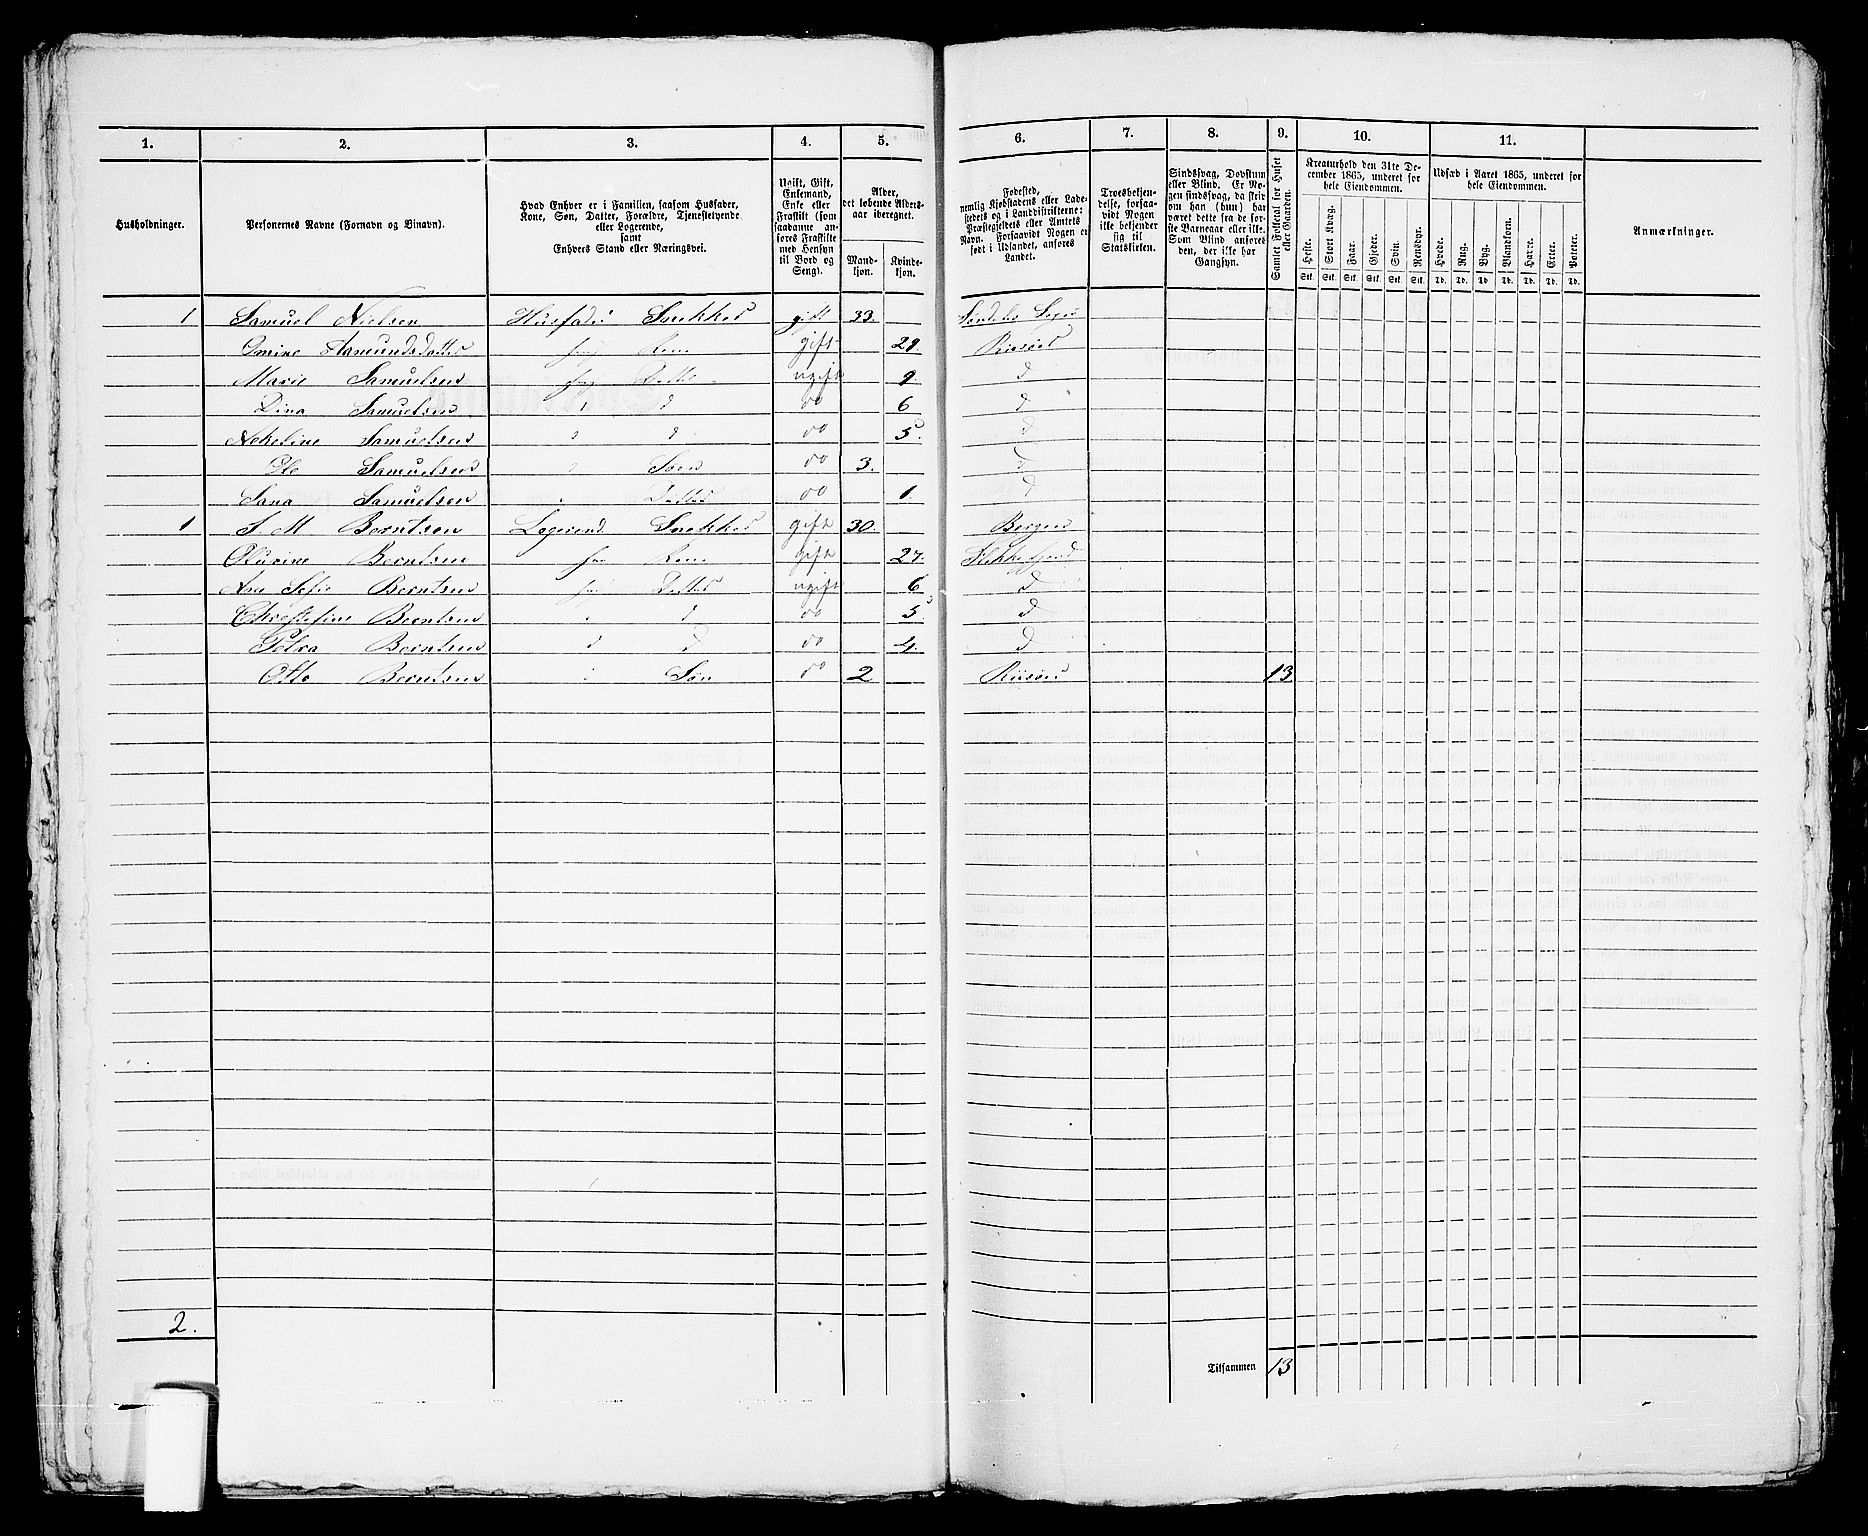 1. 2. 3. 4. 5. 6. 7. 8. 9. 10. 11.
Husholdninger.
Personernes Navne (Fornavn og Binavn).
Hvad Enhver er i Familien, saasom Husfader, Kone, Søn, Datter, Forældre, Tjenstetyende eller Logerende, samt Enhvers Stand eller Næringsvei.
Ugift, Gift, Enkemand, Enke eller Fraskilt (som saadanne anføres Fraskilte med Hensyn til Bord og Seng).
Alder, det løbende Aldersaar iberegnet.
Mandkjøn. Kvindekjøn.
Fødested, nemlig Kjøbstadens eller Ladestedets og i Landdistrikterne: Præstegjeldets eller Annexets Navn. Forsaavidt Nogen er født i Udlandet, anføres Landet.
Troesbekjendelse, forsaavidt Nogen ikke bekjender sig til Statskirken.
Sindssvag, Døvstum eller Blind. Er Nogen sindssvag, da skrives om han (hun) har været dette fra de første Barneaar eller ikke. Som Blind anføres den, der ikke har Gangsyn.
Samlet Folketal for Huset eller Gaarden.
Kreaturhold den 31te December 1865, underet for hele Eiendommen.
Heste. Stort Kvæg. Faar. Gjeder. Svin. Rensdyr.
Stk. Stk. Stk. Stk. Stk. Stk.
Udsæd i Aaret 1865, underet for hele Eiendommen.
Hvede. Rug. Byg. Blandkorn. Havre. Erter. Poteter.
Td. Td. Td. Td. Td. Td. Td.
Anmærkninger.
1 Samuel Nielsen Husfader Snekker gift 33. Søndeløv Sogn
Omine Aamundsdatter Kone gift 29 Riisøer
Marie Samuelsen Datter ugift 9. d
Dina Samuelsen d do 6 d
Samuelsen d do 5. d
Ole Samuelsen Søn do 3. d
Samuelsen Datter do 1. d
1 Berntsen Logerend Snekker gift 30. Bergen
Berntsen Kone gift 27. Flekkefjord
Ane Sofie Berntsen Datter ugift 6 d
Berntsen d do 5 d
Petra Berntsen d d do 4. d
Otto Berntsen Søn do 2 Riisøer 13
2.
Tilsammen 13